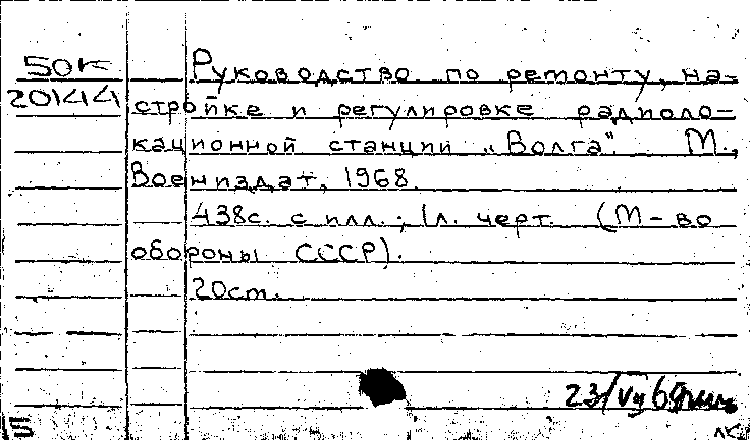 50к
20144
Руководство по ремонту, на-
стройке и регулировке радиоло-
кационной станции „Волга". М.,
Воениздат, 1968.
438с. с илл.; 1л. черт. (М-во
обороны СССР).
20см.
23/VII 69
5